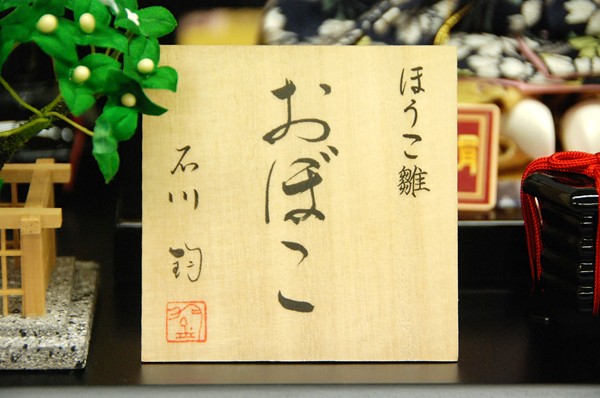 ほうこ雛
おぼこ
石川 鈞